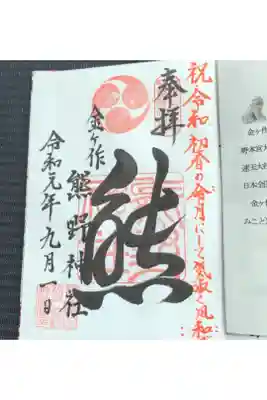 祝 令和 初春の令月にして気淑く風和
奉拝
熊
金ヶ作 熊野神社
令和元年九月一日
金ケ
野木宮大
蓮玉大
日本全国
金ケ
みこと